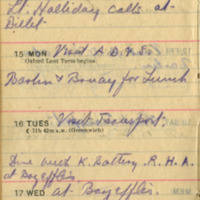 Lt. Halliday calls at
Billet
15 MON Visit A.D.V.S.
Oxford Lent Term begins
& Bonay for Lunch
16 TUES Visit Transport.
11h 42m a.m. (Greenwich)
Dine with K. Battery. R.H.A.
at Bozeffles
17 WED at Bozeffles.